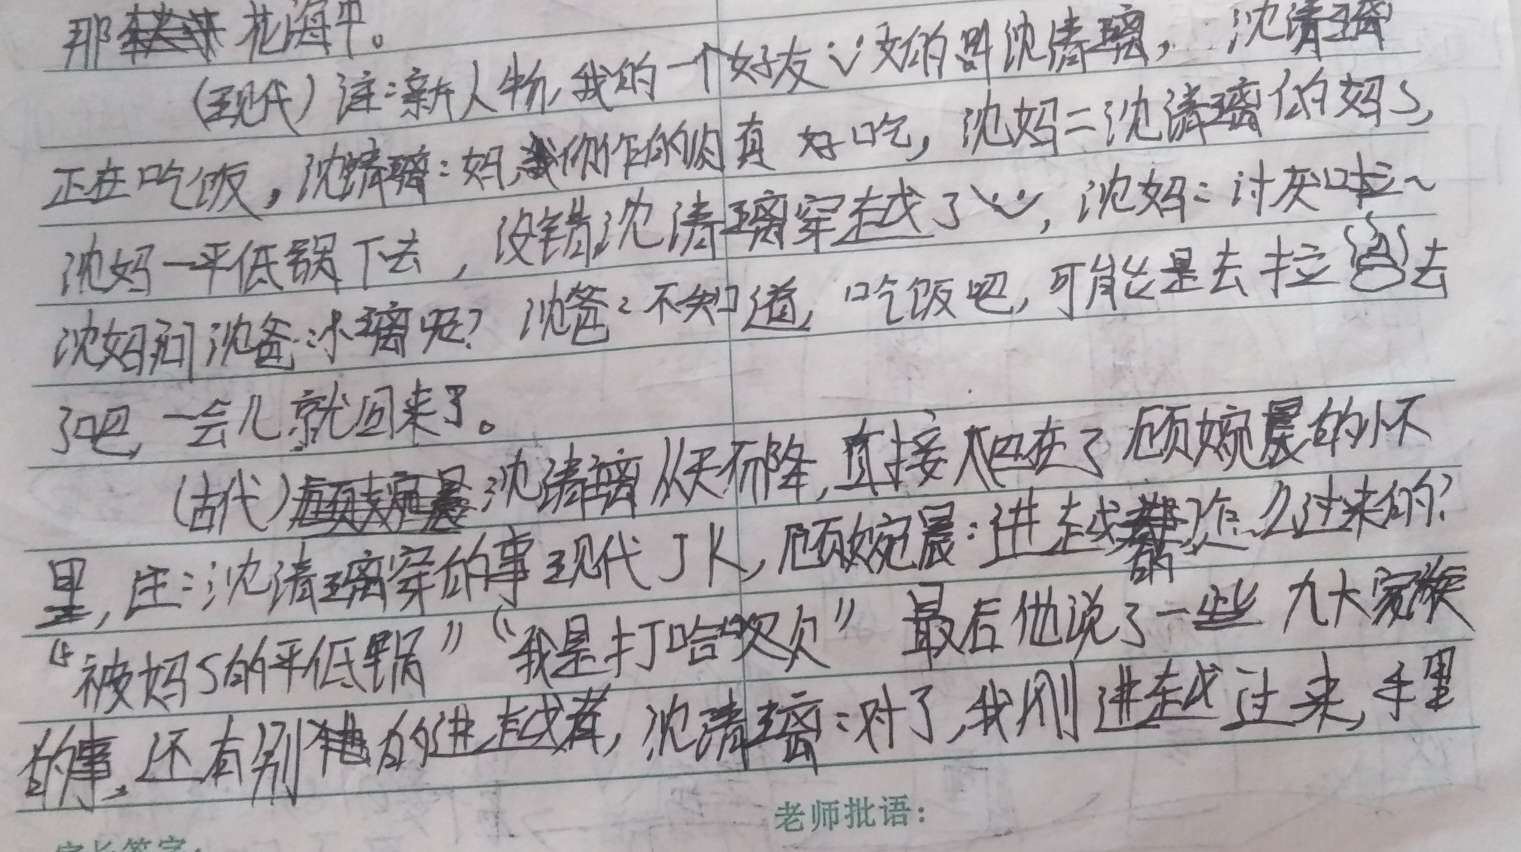 那 花海中。
(现代)注:新人物,我的一个好友 文的 叫沈清璃, 沈清璃
正在吃饭,沈清璃:妈,你作的肉真好吃,沈妈=沈清璃的妈s,
沈妈一平低锅下去,没错沈清璃穿越了,沈妈:讨灰啦~
沈妈问沈爸:小璃呢?沈爸:不知道,吃饭吧,可能是去拉 去
了吧,一会儿就回来了。
(古代) 沈清璃从天而降,直接 在了顾婉晨的怀
里,注:沈清璃穿的事现代JK,顾婉晨:进越者,你怎么过来的?
“被妈s的平低锅”“我是打哈欠 ”最后他说了一些九大家族
的事,还有别 的进越者,沈清璃:对了,我刚进越过来,手里
老师批语:
家长签字: